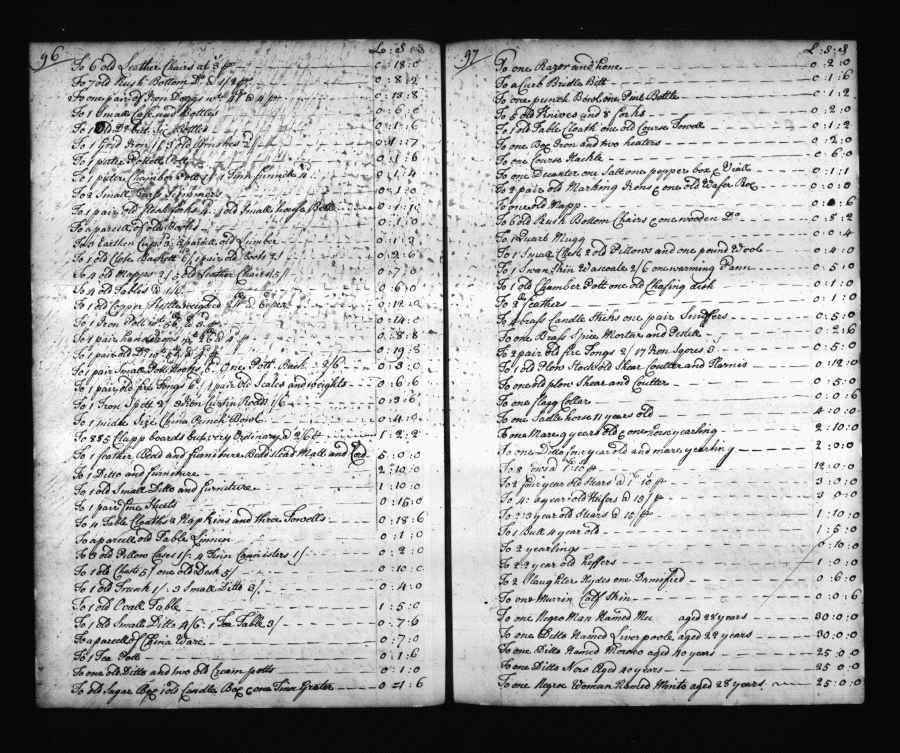 96
L : S : d
To 6 old Leather Chairs at 3 p 0 : 18 : 0
To 7 old Rush Bottom Do 0 : 8 : 2
To one pair of Iron Doggs wt 41 @ 4 p 0 : 13 : 8
To 1 Small Case and Bottles 0 : 6 : 0
To 1 old Do but Six Bottles 0 : 1 : 6
To 1 Grid Iron 1/ 3 old Brushes 2/
To 1 puter Pottell Pott 0 : 1 : 6
To 1 puter Chamber Pott 1/ 1 Tinn funnill 4 0 : 1 : 4
To 2 Small Brass Skimmers 0 : 1 : 0
To 1 pair old 1 old Small
To a parcell of old Books 0 : 1 : 0
To 3 Earthen Cups 3 : aparcell old Lumber 0 : 1 : 2
To 1 old Cloths Baskett 6/ 1 pair old Boots 2/ 0 : 2 : 6
To 4 old Mapps 2/ 5 old Leather Chairs 5/ 0 : 7 : 0
To 4 old Tables @ 1/6 0 : 6 : 0
To 1 old Copper Kettle weighed 0 : 12 : 0
To 1 Iron Pott wt 56 @ 3 p 0 : 14 : 0
To 1 pair hand Irons wt 26 @ 4 p 0 : 8 : 8
To 1 pair old Do 0 : 19 : 8
To 1 pair Small Pott Hooks 6 : One Pott 2/6 0 : 3 : 0
To 1 pair old fire Tongs 6 / 1 pair old Scales and weights 0 : 6 : 6
To 1 Iron Spitt 2/ 3 Iron Curtin Rodds 1/6 0 : 3 : 6
To 1 midle Size China Punch Bowl 0 : 4 : 0
To 885 Clapp boards but very Ordinary @ 2/6 p 1 : 2 : 2
To 1 feather Bedd and furniture Beddstead Matt and Cord 5 : 0 : 0
To 1 Ditto and furniture 2 : 10 : 0
To 1 old Small Ditto and furniture 1 : 10 : 0
To 1 pair fine Sheets 0 : 15 : 0
To 4 Table Cloaths 2 Napkins and three Towells 0 : 18 : 6
To aparcell old Table Linnen 0 : 1 : 0
To 3 old Pillow Cases 1/ : 4 Tinn Cannisters 1/ 0 : 2 : 0
To 1 old Chest 5/ one old Desk 5/ 0 : 10 : 0
To 1 old Trunk 1/ : 3 Small Ditto 3/ 0 : 4 : 0
To 1 old Ovall Table 1 : 5 : 0
To 1 old Small Ditto 4/6 : 1 Tea Table 3/ 0 : 7 : 6
To aparcell of China Ware 0 : 7 : 0
To 1 Tea Pott 0 : 1 : 6
To one old Ditto and two old Cream potts 0 : 1 : 0
To old Sugar Box 1 old Candle Box & one Tinn Grater 0 = 1 : 6
97
L : S : d
To one Razor and hone 0 : 2 : 0
To a Curb Bridle Bitt 0 : 1 : 6
To one punch Bowl one Pint Bottle 0 : 1 : 2
To 5 old Knives and 8 forks 0 : 2 : 0
To 1 old Table Cloath one old Course Towell 0 : 1 : 2
To one Box Iron and two heaters 0 : 2 : 0
To one Course Hackle 0 : 6 : 0
To one Decanter one Salt one pepper box & Viall 0 : 1 : 1
To 2 pair old Marking Irons & one old Wafer Box 0 : 0 : 0
To one old Mapp 0 : 0 : 6
To 6 old Rush Bottom Chairs & one wooden Do 0 : 8 : 2
To 1 Quart Mugg 0 : 0 : 4
To 1 Small Chest 2 old Pillows and one pound Wool 0 : 4 : 0
To 1 Swan Skin Wascoate 2/6 one warming Pann 0 : 5 : 0
To 1 old Chamber Pott one old Chafing dish 0 : 1 : 0
To 2 lb feathers 0 : 1 : 0
To 4 brass Candle Sticks one pair Snuffers 0 : 5 : 0
To one Brass Spice Mortar and Pestle 0 : 2 : 6
To 2 pair old fire Tongs 2/ 17 Iron 3 0 : 5 : 0
To 1 old Plow Stock old Shear Coulter and Harnis 0 : 12 : 0
To one old plow Shear and Coulter 0 : 5 : 0
To one flagg Collar 0 : 0 : 6
To one Sadle horse 11 years old 4 : 0 : 0
To one Mare 9 years old & one horse yearling 2 : 10 : 0
To one Ditto four year old and mare yearling 2 : 0 : 0
To 8 Cows @ 1 : 10 p 12 : 0 : 0
To 2 four year old Stears @ 1 : 10 p 3 : 0 : 0
To 4 : 3 year old Heifers @ 15/ p 3 : 0 : 0
To 2 : 3 year old Stears @ 15/ p 1 : 10 : 0
To 1 Bull 4 year old 1 : 5 : 0
To 2 yearlings 0 : 10 : 0
To 2 : 2 year old heffers 1 : 0 : 0
To 2 Slaughter Hydes one Damnified 0 : 6 : 0
To one Murrin Calf Skin 0 : 0 : 6
To one Negro Man Named aged 28 years 30 : 0 : 0
To one Ditto Named Liverpoole aged 22 years 30 : 0 : 0
To one Ditto Named Moroco aged 40 years 25 : 0 : 0
To one Ditto Nero Aged 40 years 25 0 : 0
To one Negroe Woman Named Minto aged 28 years 25 : 0 : 0